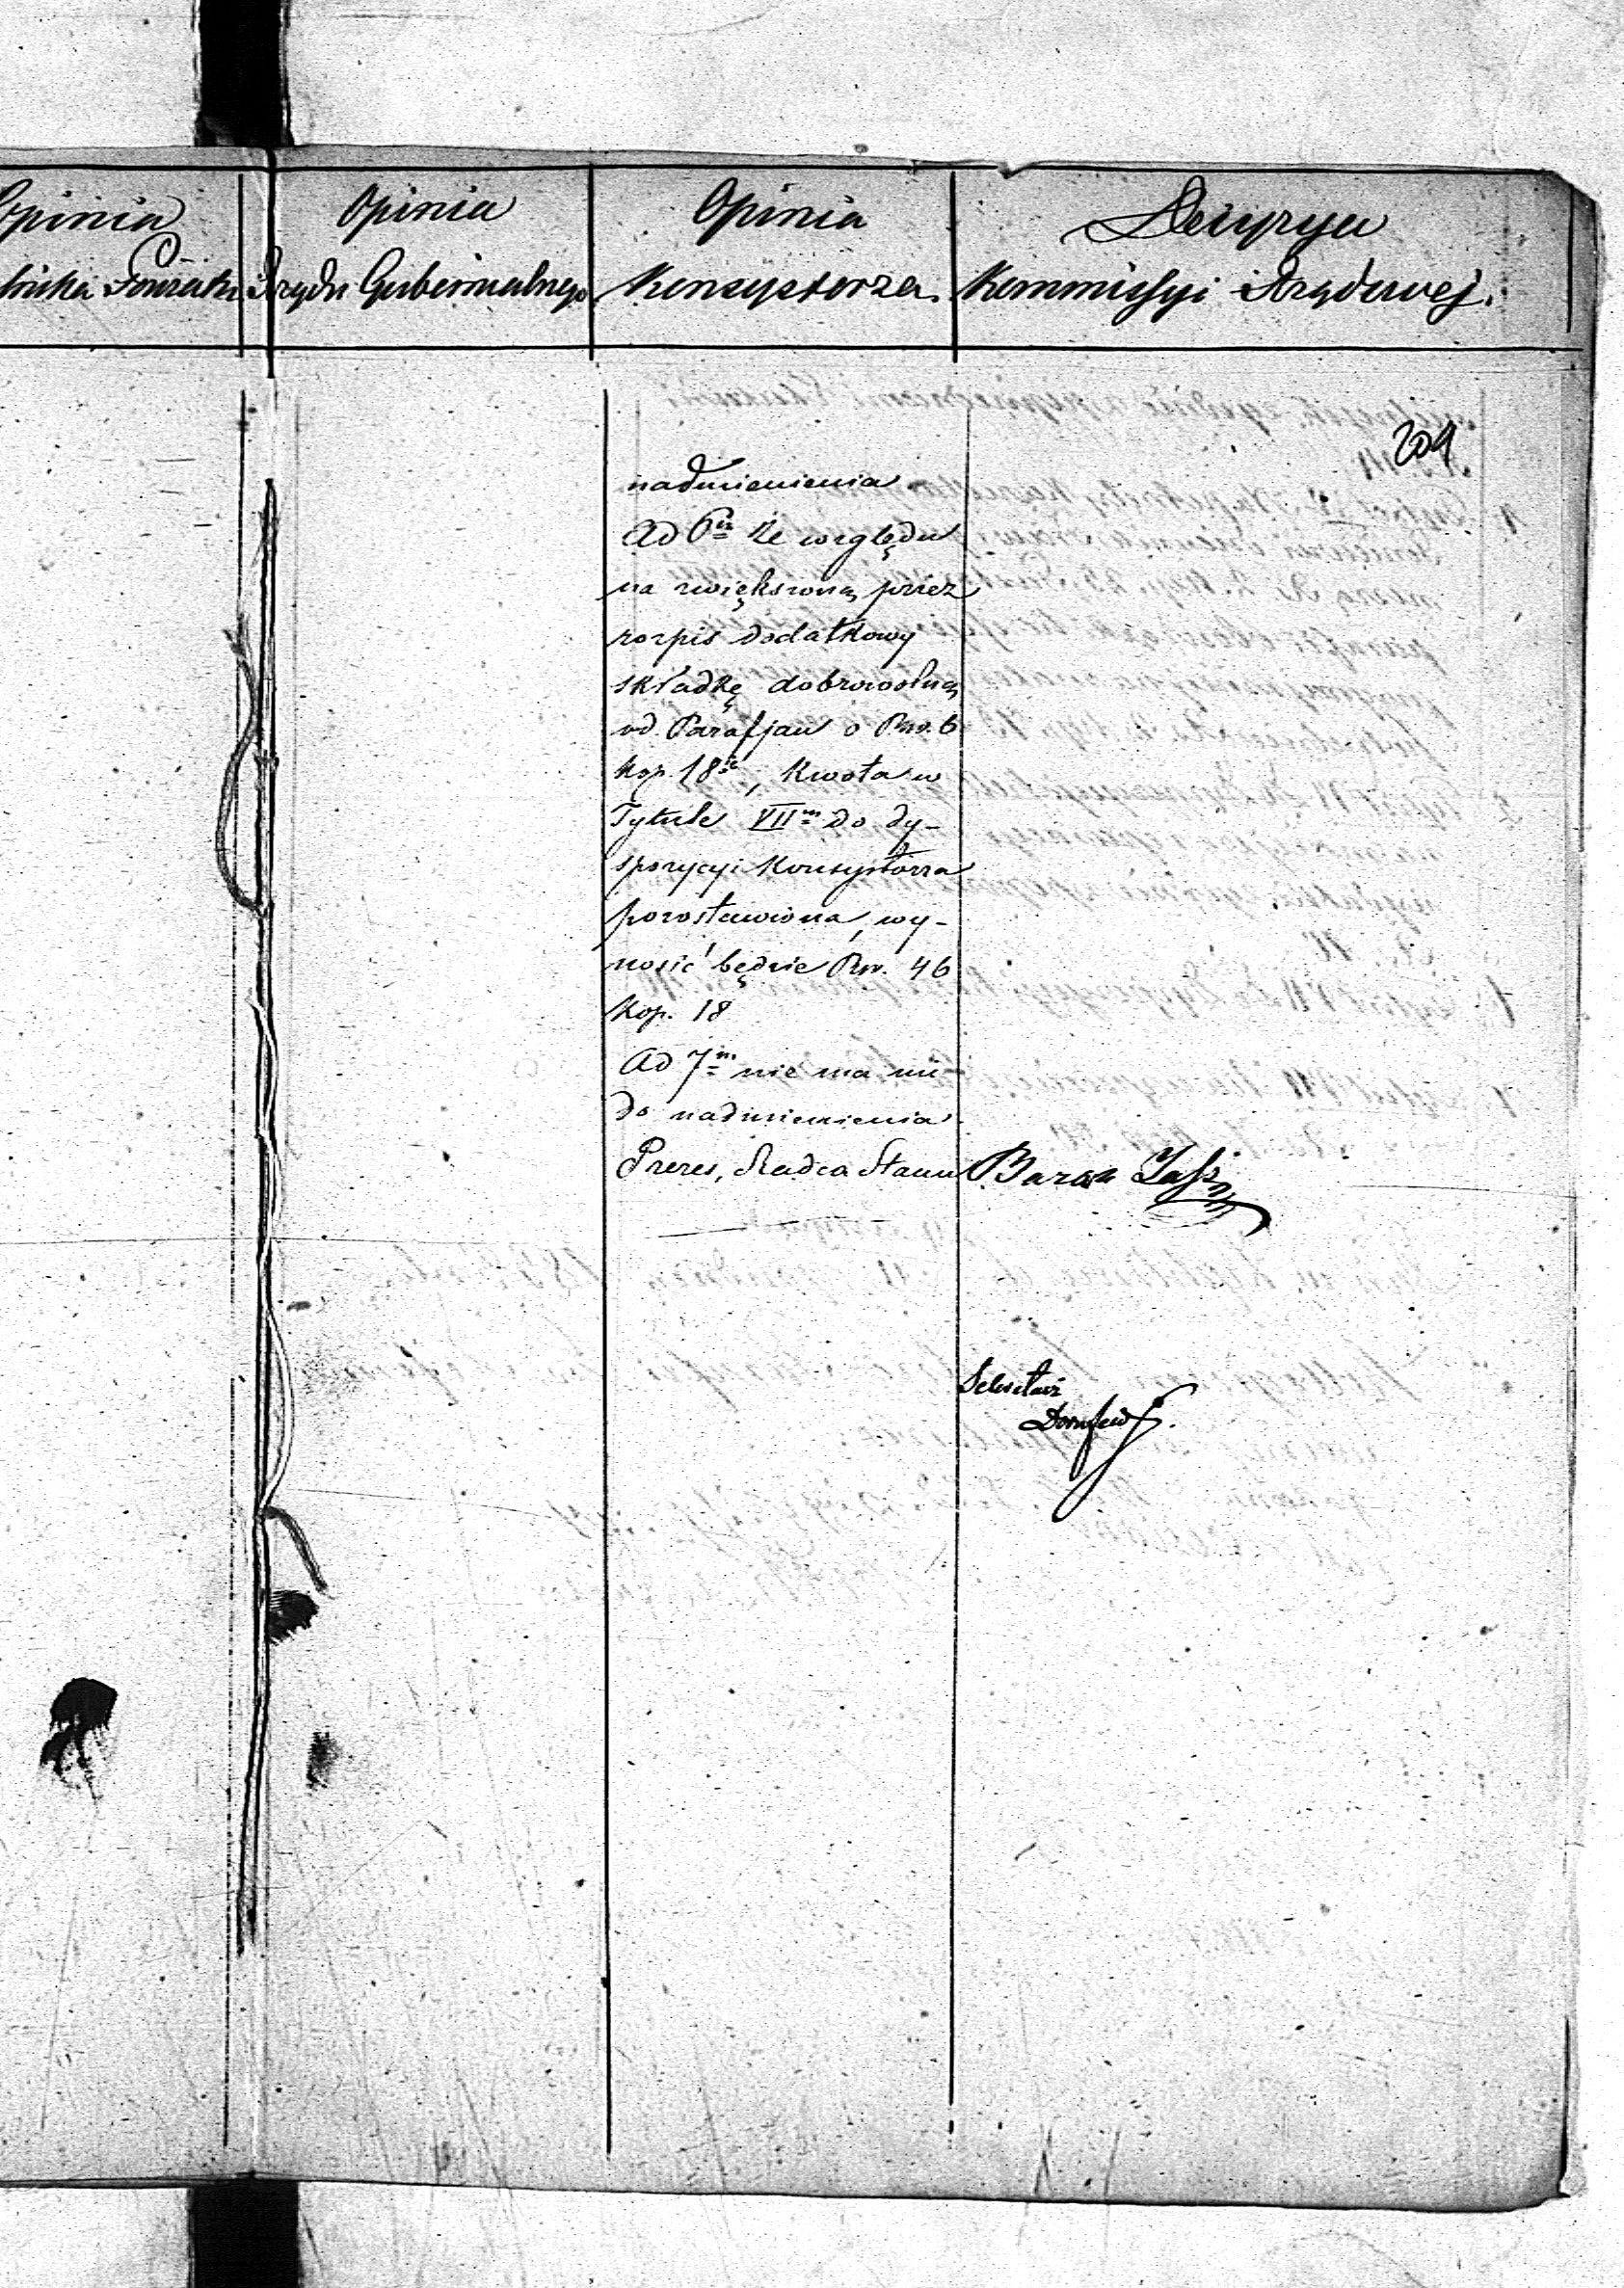 Opinia
Opinia
Rządu Gubernialnego
Opinia
Konsystorza
Decyzya
Kommissyi Rządowej.
209
nadmienienia.
Ad 6m Ze względu
na zwiększoną przez
rozpis dodatkowy
składkę dobrowolną
od Parafjan o Rsr. 6
Kop. 18, Kwota w
Tytule VIIm do dy-
spozycyi Konsystorza
pozostawiona, wy-
nosić będzie Rsr. 46
Kop. 18
Ad 7m nie ma nic
do nadmienienia.
Prezes, Radca Stanu
Sekretarz